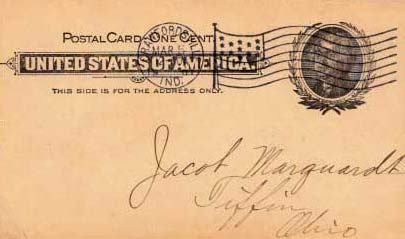 POSTAL CARD - ONE CENT.
UNITED STATES OF AMERICA.
THIS SIDE IS FOR THE ADDRESS ONLY.
CRAWFORDSVILLE
MAR 5
IND.
Jacob Marquardt
Tiffin
Ohio